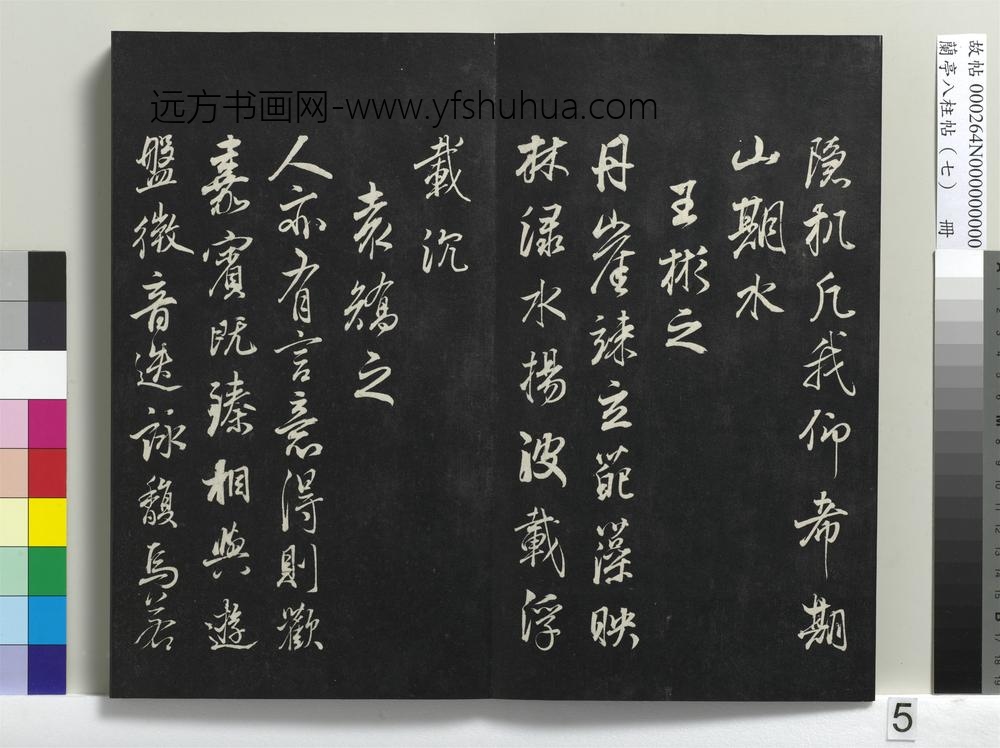 远方书画网-www.yfshuhua.com
隐机凡我仰希期
山期水
王彬之
丹崖竦立葩藻映
林渌水揚波載浮
載沉
袁矯之
人亦有言意得則歡
嘉賓既臻相與遊
盤微音迭詠馥焉若
故帖 000264N000000000
蘭亭八柱帖（七） 冊
5